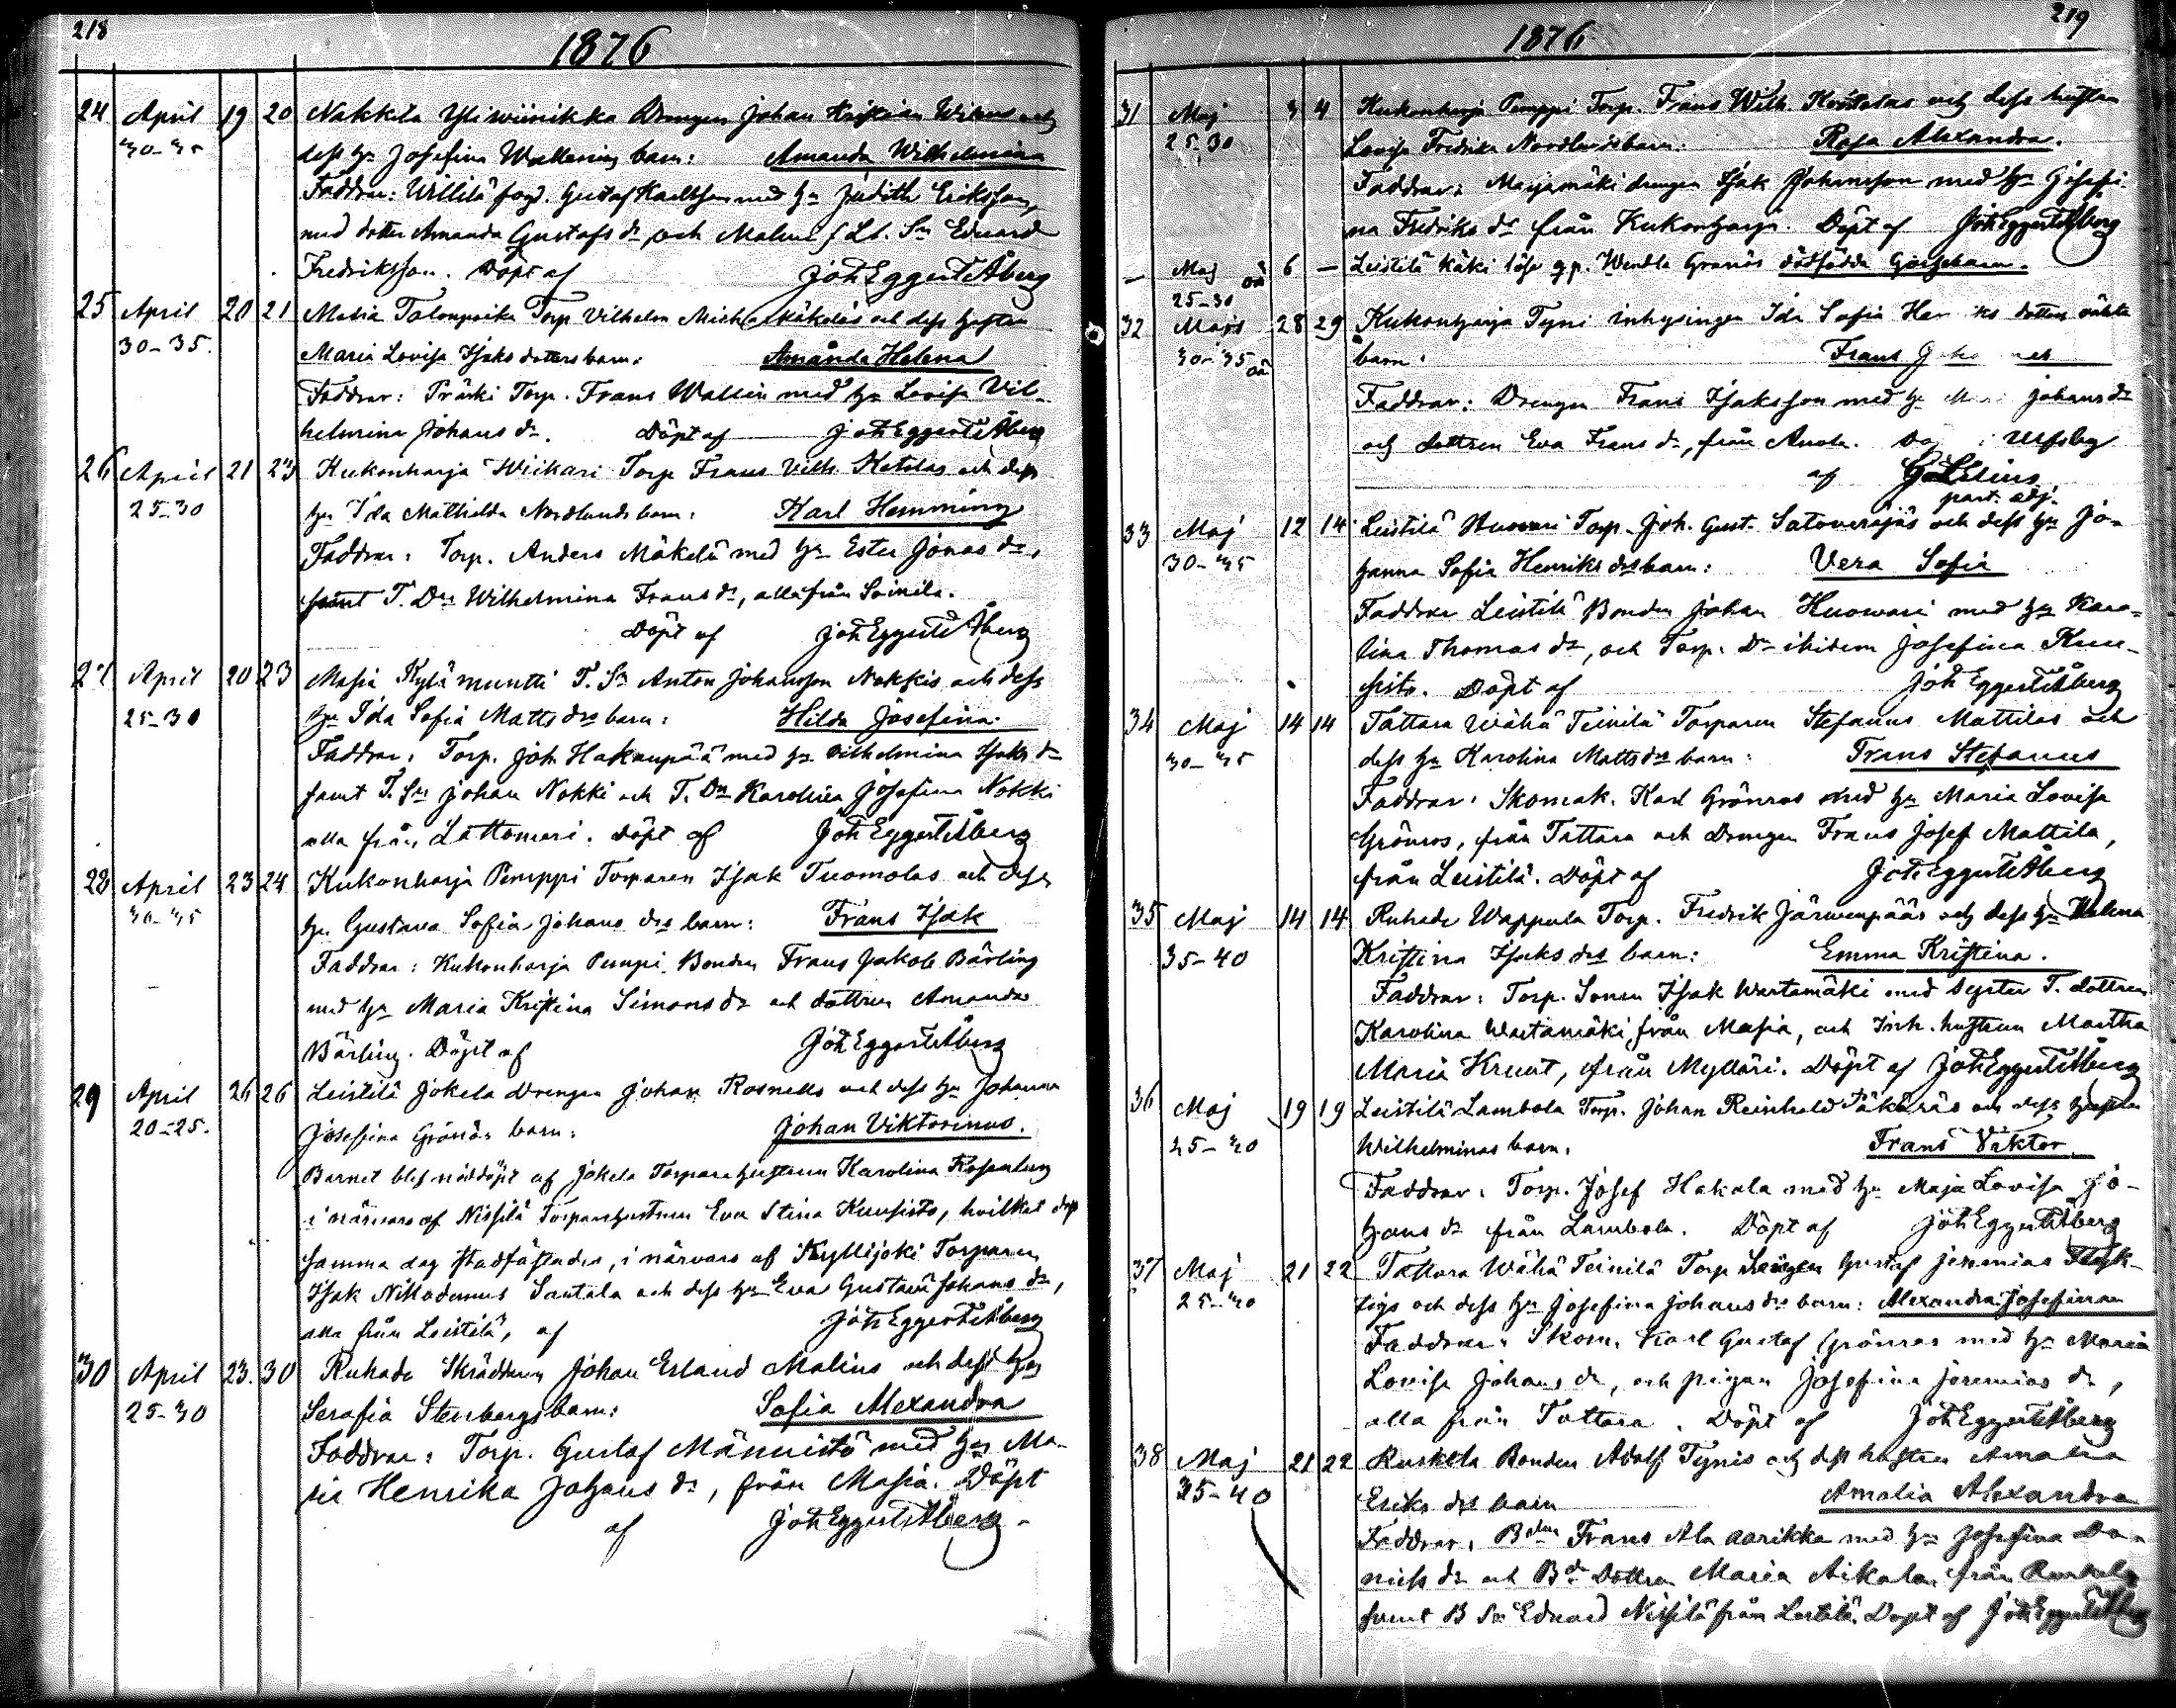 218
1876
24 April 19 20 Nakkila Yliwiinikka Drengen Johan Kristian Wilens och
30-35 dess hu Josefina Wallenius barn: Amanda Wilhelmina
Faddrar: Willilä fogd. Gustaf Karlsson med hu Judith Eriksson,
med dotter Amanda Gustafs dr och Malms Lt. Sn Eduard
Fredriksson. Döpt af Joh Eggert Åberg
25 April 20 21 Masia Talonpoika Torp Vilhelm Mich Mäkeläs och dess hustru
30-35. Maria Lovisa Isaks dotters barn: Amanda Helena
Faddrar: Präski Torp. Frans Wallin med hu Lovisa Vil-
helmina Johans dr. Döpt af Joh Eggert Åberg
26 April 21 23 Kukonharja Wiikari Torp Frans Vilh. Ketolas och dess
25-30 hu Ida Mathilda Nordlunds barn: Karl Hemming
Faddrar: Torp. Anders Mäkelä med hu Ester Jonas dr,
samt T. Dr Wilhelmina Frans dr, alla från Soinila.
Döpt af Joh Eggert Åberg
27 April 20 23 Masia Kylämuntti T. Sn Anton Johansson Nokkis och dess
25-30 hu Ida Sofia Matts drs barn: Hilda Josefina.
Faddrar: Torp. Joh Hakanpää med hu Vilhelmina Isaks dr
samt T. Sn Johan Nokki och T. Dr Karolina Josefina Nokki
alla från Lattomeri. Döpt af Joh Eggert Åberg
28 April 23 24 Kukonharja Pemppi Torparen Isak Tuomolas och dess
30-35 hu Gustava Sofia Johans drs barn: Frans Isak
Faddrar: Kukonharja Pempi Bonden Frans Jakob Bärling
med hu Maria Kristina Simons dr och dottren Amanda
Bärling. Döpt af Joh Eggert Åberg
29 April 26 26 Leistilä Jokela Drengen Johan Rosnells och dess hu Johanna
20-25. Josefina Grönroos barn: Johan Viktorinus.
Barnet blef nöddöpt af Jokela Torpare hustrun Karolina Rosenberg
i närvaro af Nissilä Torparehustrun Eva Stina Kuusisto, hvilket dop
samma dag stadfästades, i närvaro af Kyllijoki Torparen
Isak Nikodemus Santala och dess hu Eva Gustava Johans dr,
alla från Leistilä, af Joh Eggert Åberg
30 April 23. 30 Ruhade Skräddaren Johan Erland Malins och dess hu
25-30 Serafia Stenbergs barn: Sofia Alexandra
Faddrar: Torp. Gustaf Männistö med hu Ma-
ria Henrika Johans dr, från Masia. Döpt
af Joh Eggert Åberg
219
1876
31 Maj 3 4 Kukonharja Pemppi Torp. Frans Wilh. Kostolas och dess hustru
25-30 Lovisa Fredrika Nordlunds barn: Rosa Alexandra.
Faddrar: Marjamäki drengen Isak Johansson med hu Josefi-
na Fredriks dr från Kukonharja. Döpt af Joh Eggert Åberg
— Maj oä 6 — Leistilä Käki lösa qp. Wendla Granös dödfödda Gossebarn.
25-30
32 Mars 28 29 Kukonharja Tyni inhysingen Ida Sofia Hen ks dotters oäkta
30-35 oä barn: Frans Joha nes
Faddrar: Drengen Frans Isaksson med hu Johans dr
och dottren Eva Frans dr, från Anola. Ulfsby
af G. Lelius
past. adj.
33 Maj 12 14 Leistilä Huovari Torp. Joh. Gust. Satoverajäs och dess hu Jo-
30-35 hanna Sofia Henriks drs barn: Vera Sofia
Faddrar Leistilä Bonden Johan Huowari med hu Karo-
lina Thomas dr, och Torp. Dr ibidem Josefina Kuu-
sisto. Döpt af Joh Eggert Åberg
34 Maj 14 14 Tattara Wähä Teinilä Torparen Stefanus Mattilas och
30-35 dess hu Karolina Matts drs barn: Frans Stefanus
Faddrar: Skomak. Karl Grönros med hu Maria Lovisa
Grönros, från Tattara och Drengen Frans Josef Mattila,
från Leistilä. Döpt af Joh Eggert Åberg
35 Maj 14 14 Ruhade Wappula Torp. Fredrik Järwenpääs och dess hu Helena
35-40 Kristina Isaks drs barn: Emma Kristina.
Faddrar: Torp. Sonen Isak Wartamäki med syster T. dottren
Karolina Wartamäki, från Masia, och Inh. hustrun Martha
Maria Kruut, från Mylläri. Döpt af Joh Eggert Åberg
36 Maj 19 19 Leistilä Lambola Torp. Johan Reinhold Säkäräs och dess hustru
25-30 Wilhelminas barn. Frans Viktor.
Faddrar: Torp. Josef Hakala med hu Maja Lovisa Jo-
hans dr från Lambola. Döpt af Joh Eggert Åberg
37 Maj 21 22 Tattara Wähä Teinilä Torp Gustaf Jeremias
25-30 och dess hu Josefina Johans drs barn: Alexandra Josefina
Faddrar: Skom. Karl Gustaf Grönros med hu Maria
Lovisa Johans dr, och pigan Josefina Jeremias dr,
alla från Tattara. Döpt af Joh Eggert Åberg
38 Maj 21 22 Ruskila Bonden Adolf Tynis och dess hustru Amalia
35-40 Eriks drs barn Amalia Alexandra
Faddrar: Bden Frans Ala aarikka med hu Josefina Da-
niels dr och Bd Dottren Maria Aikala, från
samt B Sn Eduard Nissilä från Leistilä. Döpt af Joh Eggert Åberg